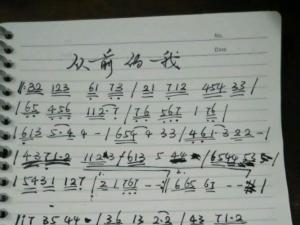 No.
Date
从前的我
1.32 123 61 73 | 21 712 454 33 |
| 65 456 112.7 | 76 567 1 76 |
| 613 5.4 4 - | 654 4 33 | 461 3 2 2 - |
| 4371.2 1123 | 613 5 44 | 6544 53
| 543 1 127 | 2 1.767 - - | 665 67 - -
| 17 35 44 | 36 13 2.2 | 43 71.2